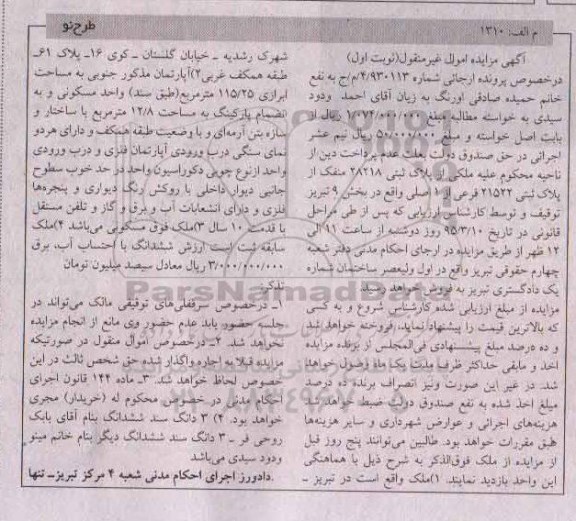 م الف: ۱۳۱۰
طرح نو
آگهی مزایده اموال غیرمنقول(نوبت اول)
درخصوص پرونده ارجائی شماره ۴/۹۳۰۱۱۳/م/ج به نفع
خانم حمیده صادقی اورنگ به زیان آقای احمد ودود
سیدی به خواسته مطالبه مبلغ ۱/۰۷۲/۰۰۰/۰۰۰ ریال از
بابت اصل خواسته و مبلغ ۵۰/۰۰۰/۰۰۰ ریال نیم عشر
اجرائی در حق صندوق دولت بعلت عدم پرداخت دین از
ناحیه محکوم علیه ملکی از پلاک ثبتی ۲۸۲۱۸ منفک از
پلاک ثبتی ۲۱۵۲۲ فرعی از اصلی واقع در بخش ۹ تبریز
توقیف و توسط کارشناس ارزیابی که پس از طی مراحل
قانونی در تاریخ ۹۵/۳/۱۰ روز دوشنبه از ساعت ۱۱ الی
۱۲ ظهر از طریق مزایده در اجرای احکام مدنی دفتر شعبه
چهارم حقوقی تبریز واقع در اول ولیعصر ساختمان شماره
یک دادگستری تبریز به فروش خواهد رسید.
مزایده از مبلغ ارزیابی شده کارشناس شروع و به کسی
که بالاترین قیمت را پیشنهاد نماید، فروخته خواهد شد
و ده درصد مبلغ پیشنهادی فی‌المجلس از برنده مزایده
اخذ و مابقی حداکثر ظرف مدت یک ماه وصول خواهد
شد. در غیر این صورت ونیز انصراف برنده ده درصد
مبلغ اخذ شده به نفع صندوق دولت ضبط خواهد شد
هزینه‌های اجرائی و عوارض شهرداری و سایر هزینه‌ها
طبق مقررات خواهد بود. طالبین می‌توانند پنج روز قبل
از مزایده از ملک فوق‌الذکر به شرح ذیل با هماهنگی
این واحد بازدید نمایند. ۱)ملک واقع است در تبریز ـ
شهرک رشدیه ـ خیابان گلستان ـ کوی ۱۶ـ پلاک ۶۱ـ
طبقه همکف غربی۲)آپارتمان مذکور جنوبی به مساحت
ابرازی ۱۱۵/۲۵ مترمربع(طبق سند) واحد مسکونی و به
انضمام پارکینگ به مساحت ۱۲/۸ مترمربع با ساختار و
سازه بتن آرمه‌ای و با وضعیت طبقه همکف و دارای هردو
نمای سنگی درب ورودی آپارتمان فلزی و درب ورودی
واحد ازنوع چوبی دکوراسیون واحد در حد خوب سطوح
جانبی دیوار داخلی با روکش رنگ دیواری و پنجره‌ها
فلزی و دارای انشعابات آب و برق و گاز و تلفن مستقل
با قدمت ۱۰ سال ۳)ملک فوق مسکونی می‌باشد ۴)ملک
سابقه ثبت است ارزش ششدانگ با احتساب آب، برق
۳/۰۰۰/۰۰۰/۰۰۰ ریال معادل سیصد میلیون تومان
تذکر:
۱ـ درخصوص سرقفلی‌های توقیفی مالک می‌تواند در
جلسه حضور یابد عدم حضور وی مانع از انجام مزایده
نخواهد شد. ۲ـ درخصوص اموال منقول در صورتیکه
مزایده قبلا به اجاره واگذار شده حق شخص ثالث در این
خصوص لحاظ خواهد شد. ۳ـ ماده ۱۴۴ قانون اجرای
احکام مدنی در خصوص محکوم له (خریدار) مجری
خواهد بود. ۴) ۳ دانگ سند ششدانگ بنام آقای بابک
روحی فر ـ ۳ دانگ سند ششدانگ دیگر بنام خانم مینو
ودود سیدی می‌باشد
.دادورز اجرای احکام مدنی شعبه ۴ مرکز تبریزـ تنها
ParsNamadData